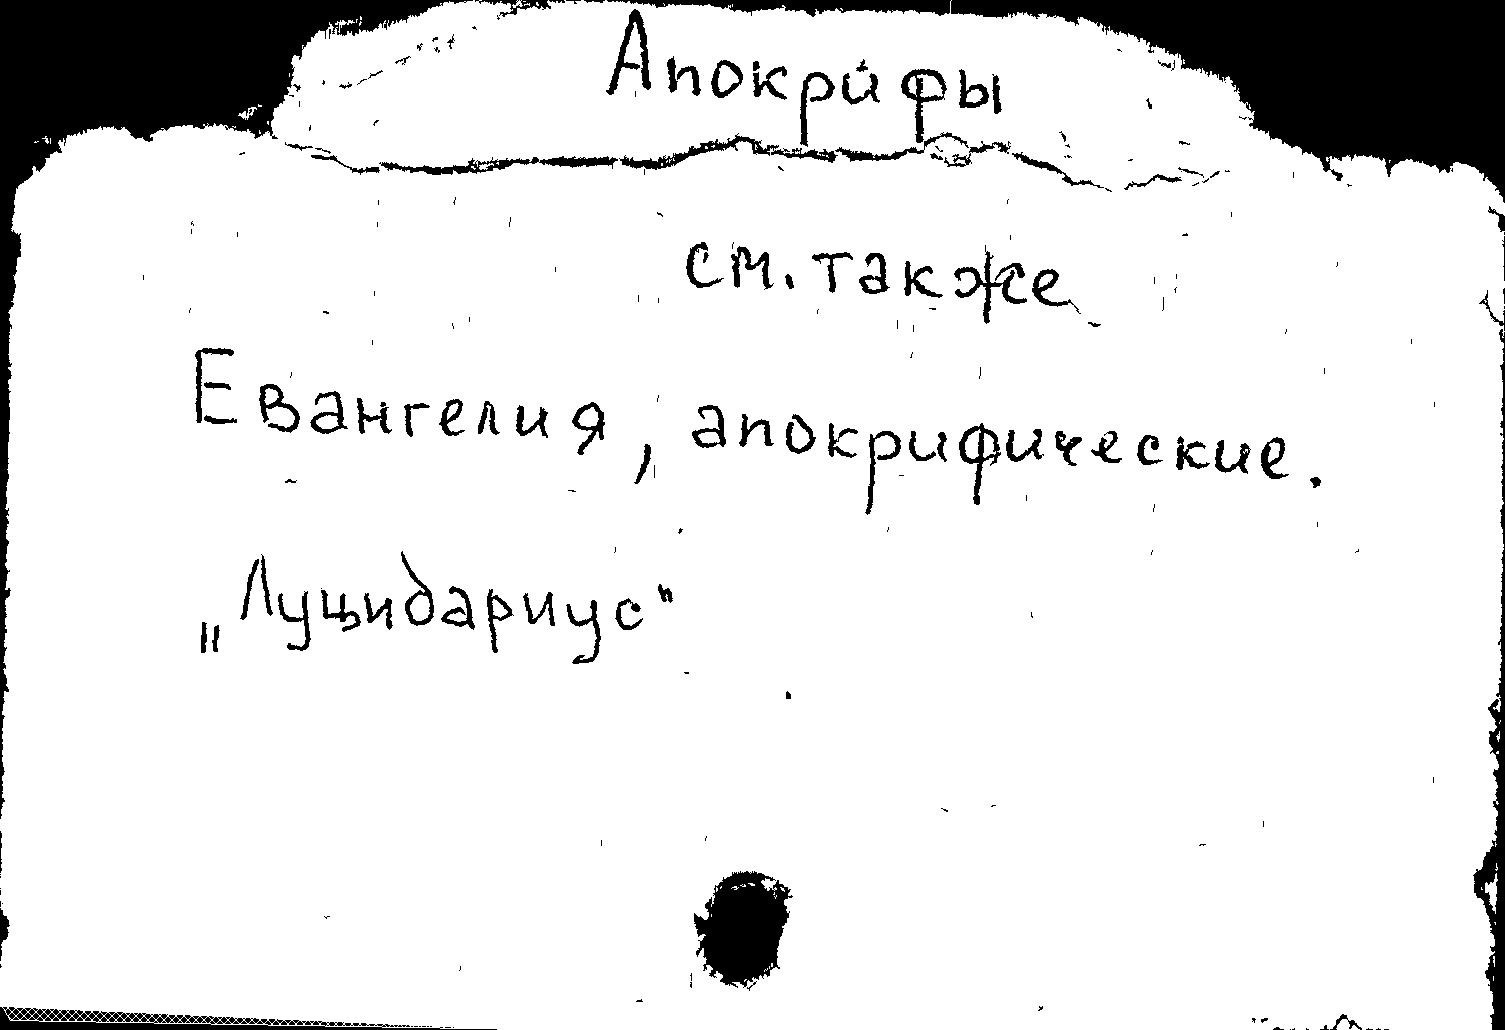 Апокрифы
см. также
Евангелия, апокрифические.
„Луцидариус"